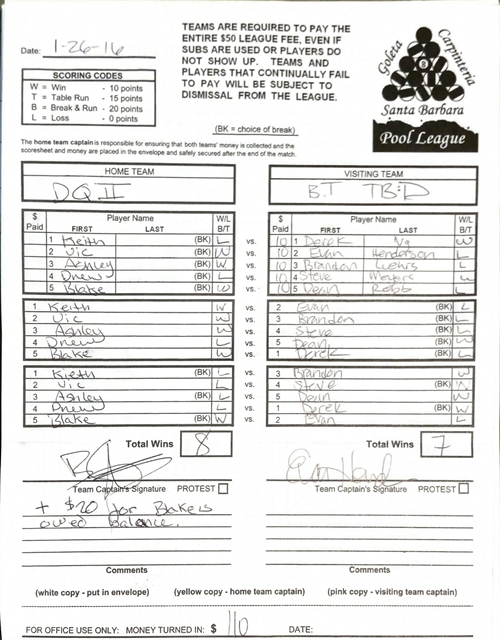 Date: 1-26-16
TEAMS ARE REQUIRED TO PAY THE
ENTIRE $50 LEAGUE FEE, EVEN IF
SUBS ARE USED OR PLAYERS DO
NOT SHOW UP. TEAMS AND
PLAYERS THAT CONTINUALLY FAIL
TO PAY WILL BE SUBJECT TO
DISMISSAL FROM THE LEAGUE.
SCORING CODES
W = Win - 10 points
T = Table Run - 15 points
B = Break & Run - 20 points
L = Loss - 0 points
Goleta
Carpinteria
8
Santa Barbara
Pool League
(BK = choice of break)
The home team captain is responsible for ensuring that both teams' money is collected and the
scoresheet and money are placed in the envelope and safely secured after the end of the match.
HOME TEAM
DQ II
VISITING TEAM
B.T TB:D
$ Paid Player Name FIRST LAST W/L B/T
$ Paid Player Name FIRST LAST W/L B/T
1 Keith (BK) L vs. 10 1 Derek Ng W
2 Vic (BK) W vs. 10 2 Evan Henderson L
3 Ashley (BK) W vs. 10 3 Brandon L
4 Drew (BK) L vs. 10 4 Steve W
5 Blake (BK) W vs. 10 5 Dean Robb L
1 Keith W vs. 2 Evan (BK) L
2 Vic W vs. 3 Brandon (BK) L
3 Ashley W vs. 4 Steve (BK) L
4 Drew L vs. 5 Dean (BK) W
5 Blake W vs. 1 Derek (BK) L
1 Kieth (BK) L vs. 3 Brandon W
2 Vic L vs. 4 Steve (BK)
3 Ashley (BK) L vs. 5 Dean W
4 Drew L vs. 1 Derek (BK) W
5 Blake (BK) W vs. 2 Evan L
Total Wins 8
Total Wins 7
Team Captain's Signature PROTEST
Team Captain's Signature PROTEST
+ $20 for Blakes
owed Balance.
Comments
Comments
(white copy - put in envelope) (yellow copy - home team captain) (pink copy - visiting team captain)
FOR OFFICE USE ONLY: MONEY TURNED IN: $ 110 DATE: